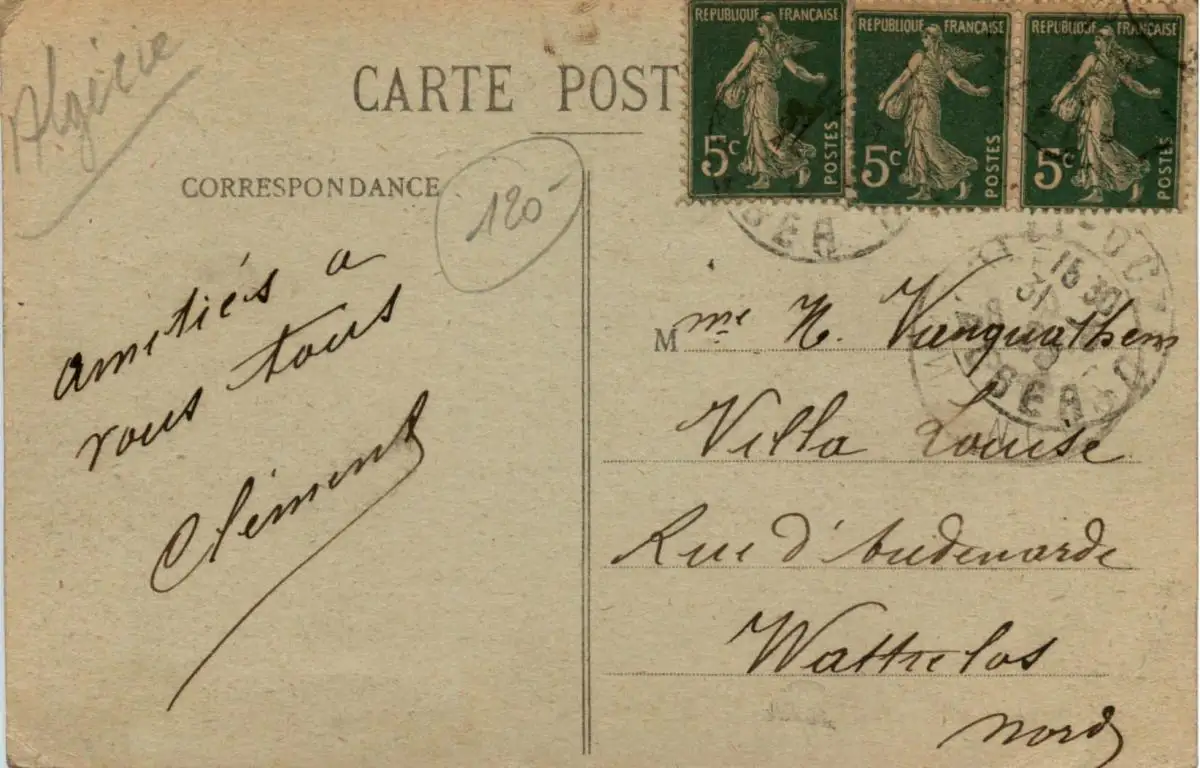 Algérie
CARTE POST
RÉPUBLIQUE FRANÇAISE
5c
POSTES
RÉPUBLIQUE FRANÇAISE
5c
POSTES
RÉPUBLIQUE FRANÇAISE
5c
POSTES
CORRESPONDANCE
120
15 30
31
Amitiés a
vous tous
Clément
Mme N.
Villa Louise
Rue d'Audenarde
Wattrelos
Nord